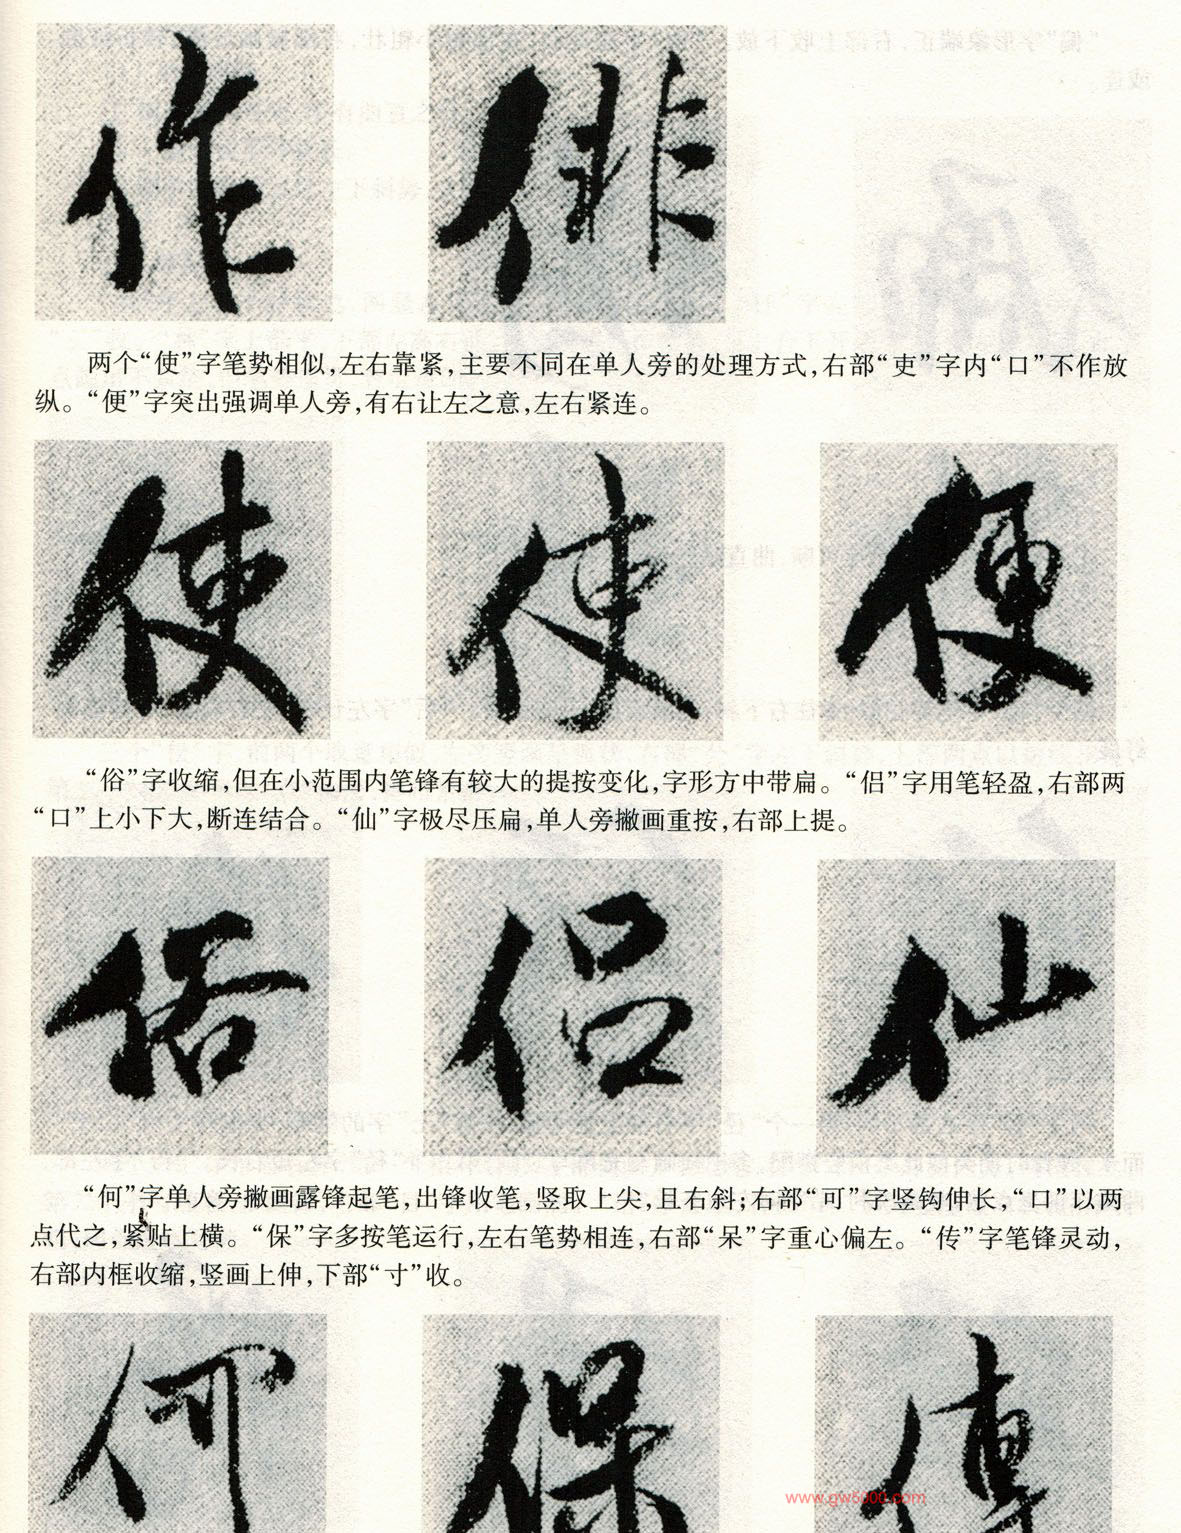 作 俳
两个“使”字笔势相似,左右靠紧,主要不同在单人旁的处理方式,右部“吏”字内“口”不作放
纵。“便”字突出强调单人旁,有右让左之意,左右紧连。
使 使 便
“俗”字收缩,但在小范围内笔锋有较大的提按变化,字形方中带扁。“侣”字用笔轻盈,右部两
“口”上小下大,断连结合。“仙”字极尽压扁,单人旁撇画重按,右部上提。
俗 侣 仙
“何”字单人旁撇画露锋起笔,出锋收笔,竖取上尖,且右斜;右部“可”字竖钩伸长,“口”以两
点代之,紧贴上横。“保”字多按笔运行,左右笔势相连,右部“呆”字重心偏左。“传”字笔锋灵动,
右部内框收缩,竖画上伸,下部“寸”收。
何 保 傳
www.gw5000.com